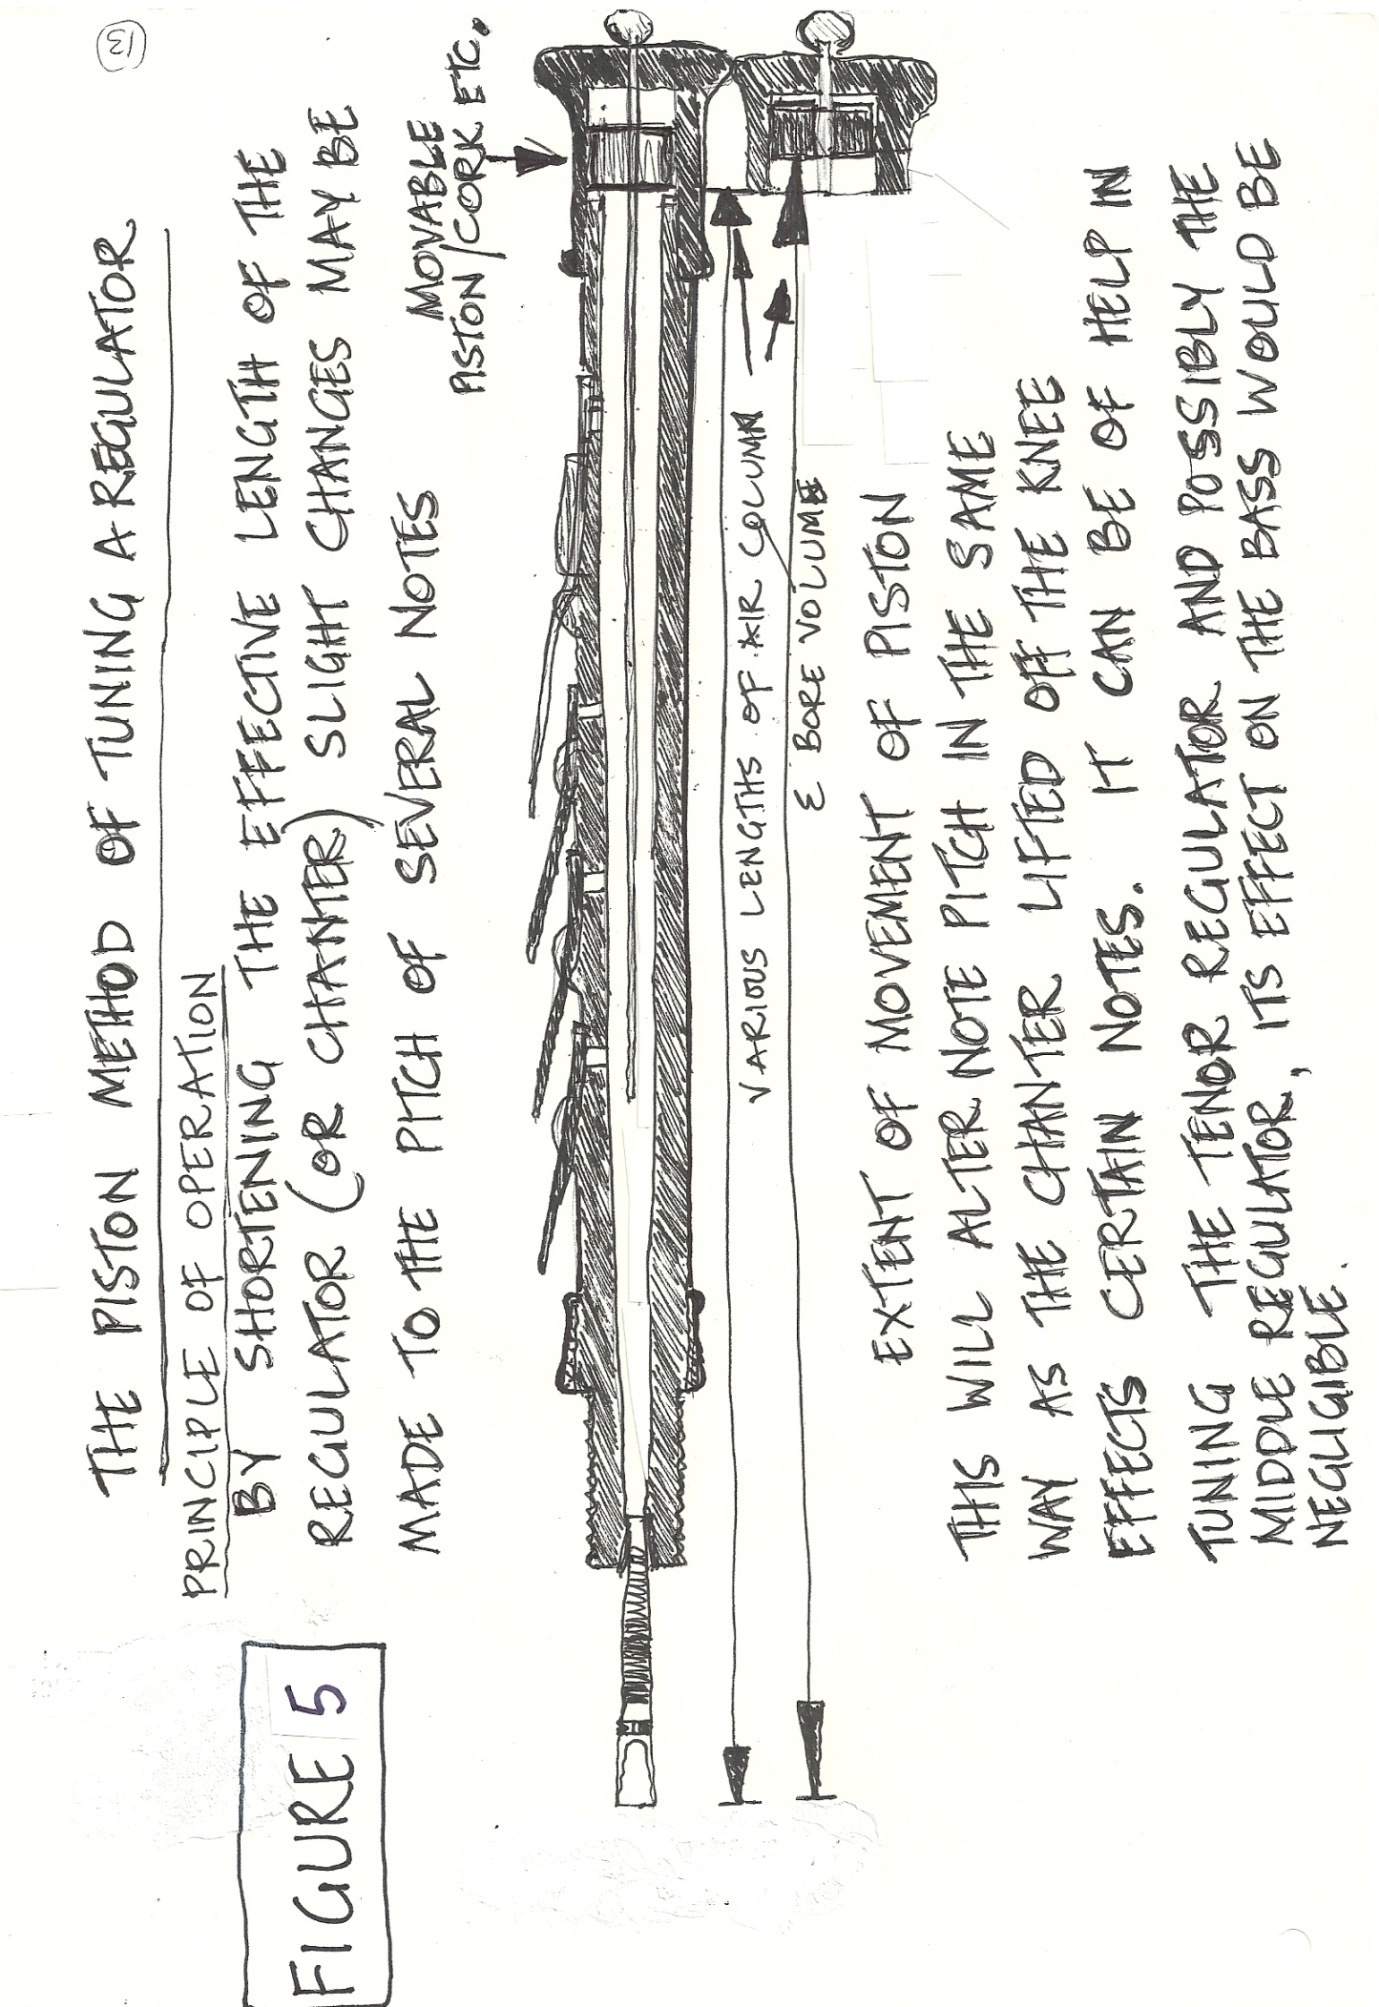 (13)
THE PISTON METHOD OF TUNING A REGULATOR
PRINCIPLE OF OPERATION
BY SHORTENING THE EFFECTIVE LENGTH OF THE
REGULATOR (OR CHANTER) SLIGHT CHANGES MAY BE
MADE TO THE PITCH OF SEVERAL NOTES
FIGURE 5
MOVABLE
PISTON/CORK ETC.
VARIOUS LENGTHS OF AIR COLUMN
& BORE VOLUME
EXTENT OF MOVEMENT OF PISTON
THIS WILL ALTER NOTE PITCH IN THE SAME
WAY AS THE CHANTER LIFTED OFF THE KNEE
EFFECTS CERTAIN NOTES. IT CAN BE OF HELP IN
TUNING THE TENOR REGULATOR AND POSSIBLY THE
MIDDLE REGULATOR, ITS EFFECT ON THE BASS WOULD BE
NEGLIGIBLE.